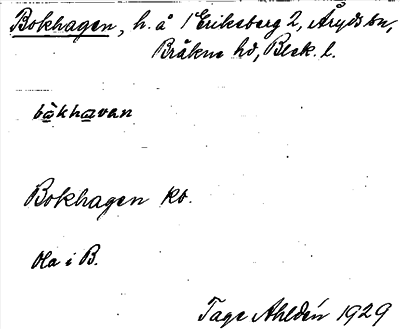 Bokhagen, h. å 1 Eriksberg 2, Åryds sn,
Bräkne hd, Blek. l.
bòkhavan
Bokhagen ko.
Ola i B.
Tage Ahldén 1929